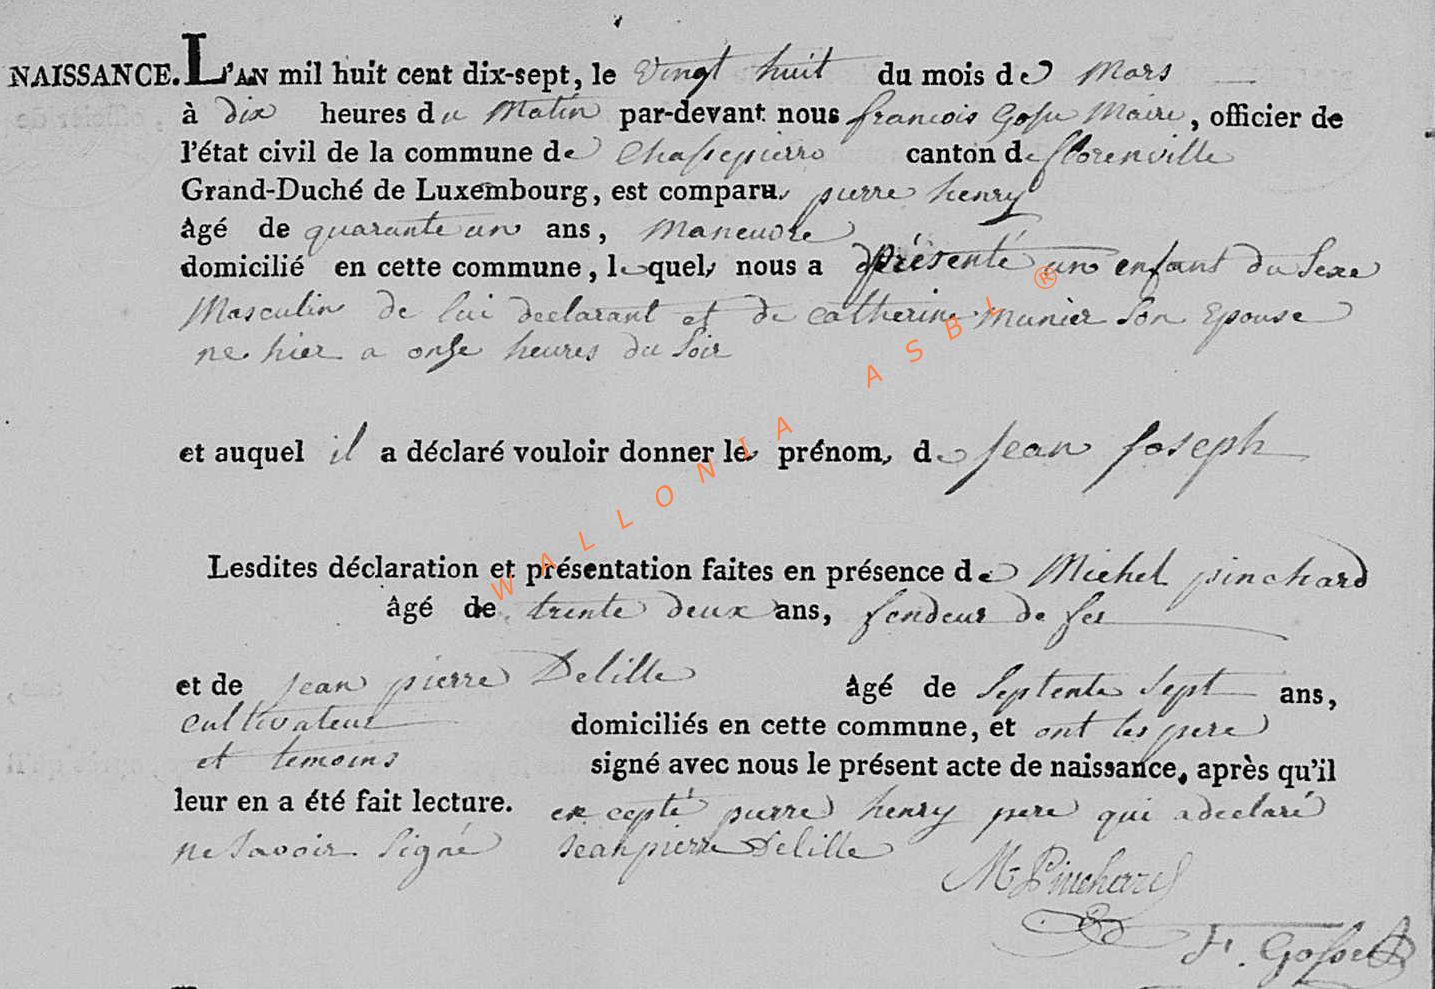 NAISSANCE. L'AN mil huit cent dix-sept, le Vingt huit du mois de Mars
à dix heures du Matin par-devant nous francois Gosse Maire, officier de
l'état civil de la commune de Chassepierre canton de florenville
Grand-Duché de Luxembourg, est comparu pierre henry
âgé de quarante un ans, maneuvre
domicilié en cette commune, lequel nous a présenté un enfant du Sexe
Masculin de lui declarant et de catherine munier Son Epouse
ne hier a onse heures du Soir
et auquel il a déclaré vouloir donner le prénom de Jean Joseph
Lesdites déclaration et présentation faites en présence de Michel pinchard
âgé de trente deux ans, fendeur de fer
et de Jean pierre Delille âgé de Septente Sept ans,
cultivateur domiciliés en cette commune, et ont les pere
et temoins signé avec nous le présent acte de naissance, après qu'il
leur en a été fait lecture. excepté pierre henry pere qui a declaré
ne Savoir Signé Jean pierre Delille
M Pinchard
F. Gosset
WALLONIA ASBL ®